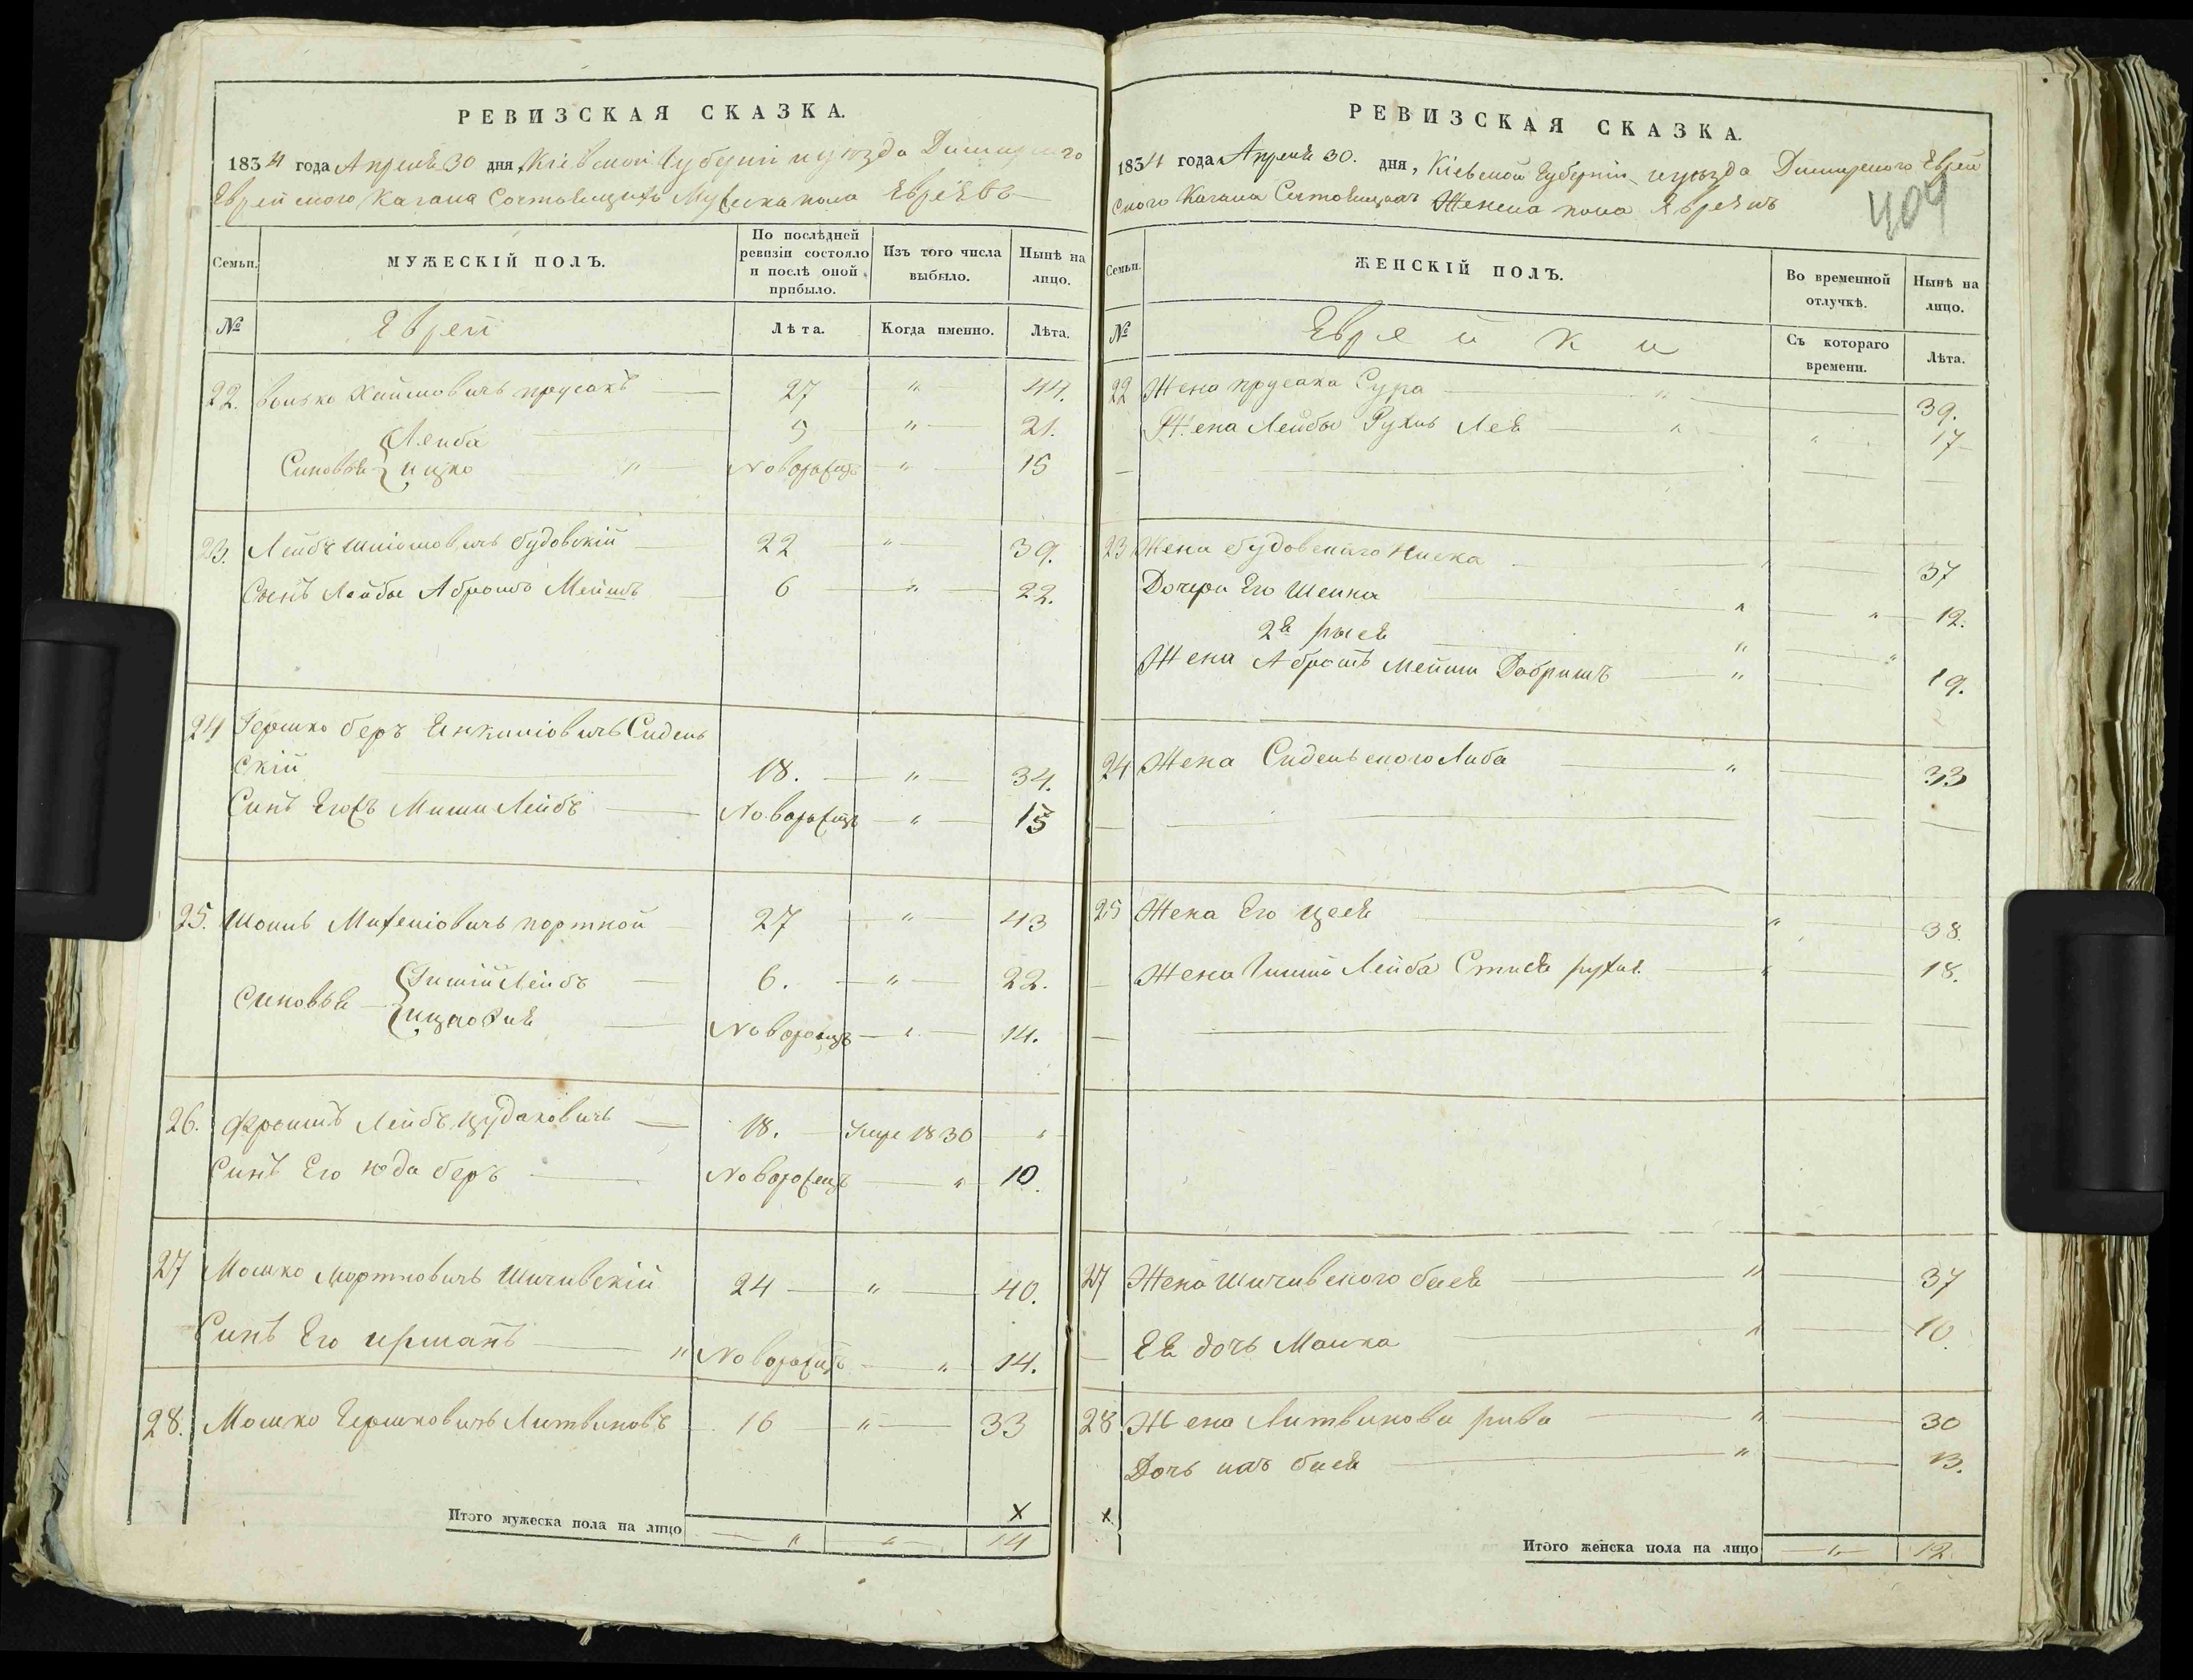 РЕВИЗСКАЯ СКАЗКА.
1834 года Апреля 30 дня, Кіевской Губерніи и уезда Димирского
Еврейского Кагана Состоящихъ Мужеска пола Евреевъ
Семьи.
МУЖЕСКІЙ ПОЛЪ.
По послѣдней ревизіи состояло и послѣ оной прибыло.
Изъ того числа выбыло.
Нынѣ на лицо.
№
Еврей
Лѣта.
Когда именно.
Лѣта.
22. Волько Хаимовичъ прусакъ 27 " 44.
Лейба 5 " 21.
Синовья Ицко " Новорожденъ " 15
23. Лейбъ Шліомовичъ будовскій 22 " 39.
Сынъ Лейбы Абрамъ Мейшъ 6 " 22.
24 Гершко беръ Янкиліовичъ Сидель
скій 18. " 34.
Синъ Его Миши Лейбъ Новорожденъ " 15
25. Шоиль Михеліовичъ портной 27 " 43
Гишій Лейбъ 6. " 22.
Синовья Новорожденъ " 14.
26. Фроимъ Лейбъ Иудаковичъ 18. Умре 1830 "
Синъ Его Юда беръ Новорожденъ " 10.
27 Мошко Мортковичъ Шичивскій 24 " 40.
Синъ Его Ицманъ " Новорожденъ " 14.
28. Мошко Гершковичъ Литвиновъ 16 " 33
Х
Итого мужеска пола на лицо " " 14
РЕВИЗСКАЯ СКАЗКА.
1834 года Апреля 30. дня, Кіевской Губерніи и уезда Димирского Еврей
ского Кагана Состоящихъ Женска пола Евреекъ
409
Семьи.
ЖЕНСКІЙ ПОЛЪ.
Во временной отлучкѣ.
Нынѣ на лицо.
№
Еврейки
Съ котораго времени.
Лѣта.
22 Жена прусака Сура " 39.
Жена Лейбы Рухль Лея " " 17
23 Жена будовскаго Хиска " 37
Дочери Его Шенка " " 12.
2я рыся " "
Жена Абрамъ Мейши Добришъ " 19.
24 Жена Сидельского Либа " 33
25 Жена Его Цеся " 38.
Жена Гишій Лейба Стися рухля " 18.
27 Жена Шичивского бася " 37
Ея дочь Малка " 10.
28 Жена Литвинова рива " 30
Дочь ихъ бися " 13.
х
Итого женска пола на лицо " 12